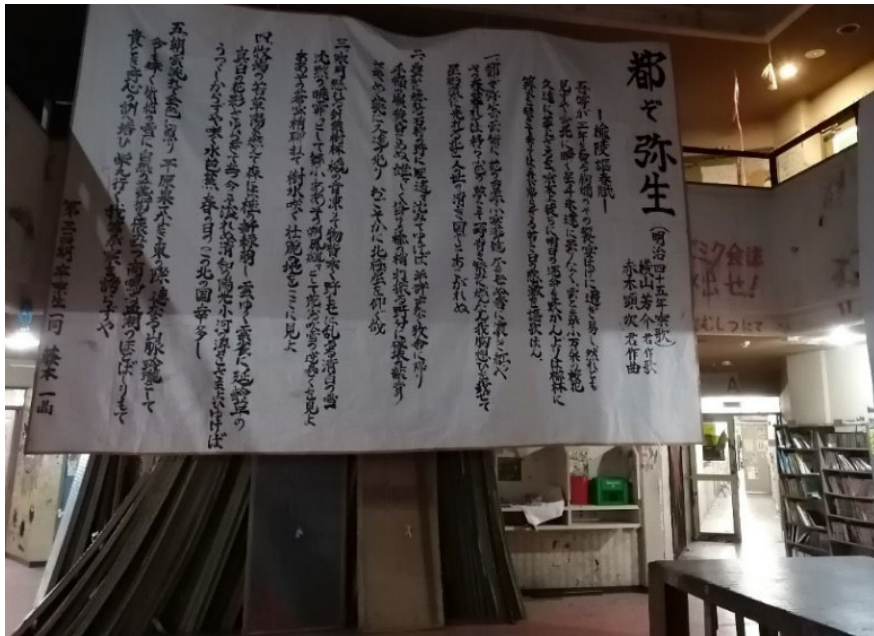 都ぞ弥生 (明治四十五年寮歌)
横山芳介君作歌
赤木顕次君作曲
―楡陵謳春賦―
吾等が三年を契る絢爛のその饗宴はげに過ぎ易し。然れども
見ずや穹北に瞬く星斗永遠に曇りなく、雲とまがふ万朶の桜花
久遠に萎えざるを。寮友よ徒らに明日の運命を歎かんよりは楡林に
篝火を焚きて去りては再び帰らざる若き日の感激を謳歌はん。
一、都ぞ弥生の雲紫に花の香漂ふ宴遊の筵尽きせぬ奢に濃き紅や
その春暮れては移ろふ色の夢こそ一時青き繁みに燃えなん我胸想ひを載せて
星影冴かに光れる北を人の世の清き国ぞとあこがれぬ
二、豊かに稔れる石狩の野に雁の音遥々沈みてゆけば羊群声なく牧舎に帰り
手稲の嶺黄昏こめぬ雄々しく聳ゆる楡の梢打振る野分に破壊の葉音の
さやめく甍に久遠の光りおごそかに北極星を仰ぐ哉
三、寒月懸れる針葉樹林橇の音凍りて物皆寒く野もせに乱るる清白の雪
沈黙の暁霏々として舞ふああその朔風飄々として荒ぶる吹雪の逆巻くを見よ
ああその蒼空梢聯ねて樹氷咲く壮麗の地をここに見よ
四、牧場の若草陽炎燃えて森には桂の新緑萌し雲ゆく雲雀に延齢草の
真白の花影さゆらぎて立つ今こそ溢れぬ清和の陽光小河の潯をさまよひゆけば
うつくしからずや咲く水芭蕉春の日のこの北の国幸多し
五、朝雲流れて金色に照り平原果てなき東の際連なる山脈玲瓏として
今しも輝く紫紺の雪に自然の芸術を懐みつつ高鳴る血潮のほとばしりもて
貴とき野心の訓へ培ひ栄え行く我等が寮を誇らずや
卒寮生一同
A